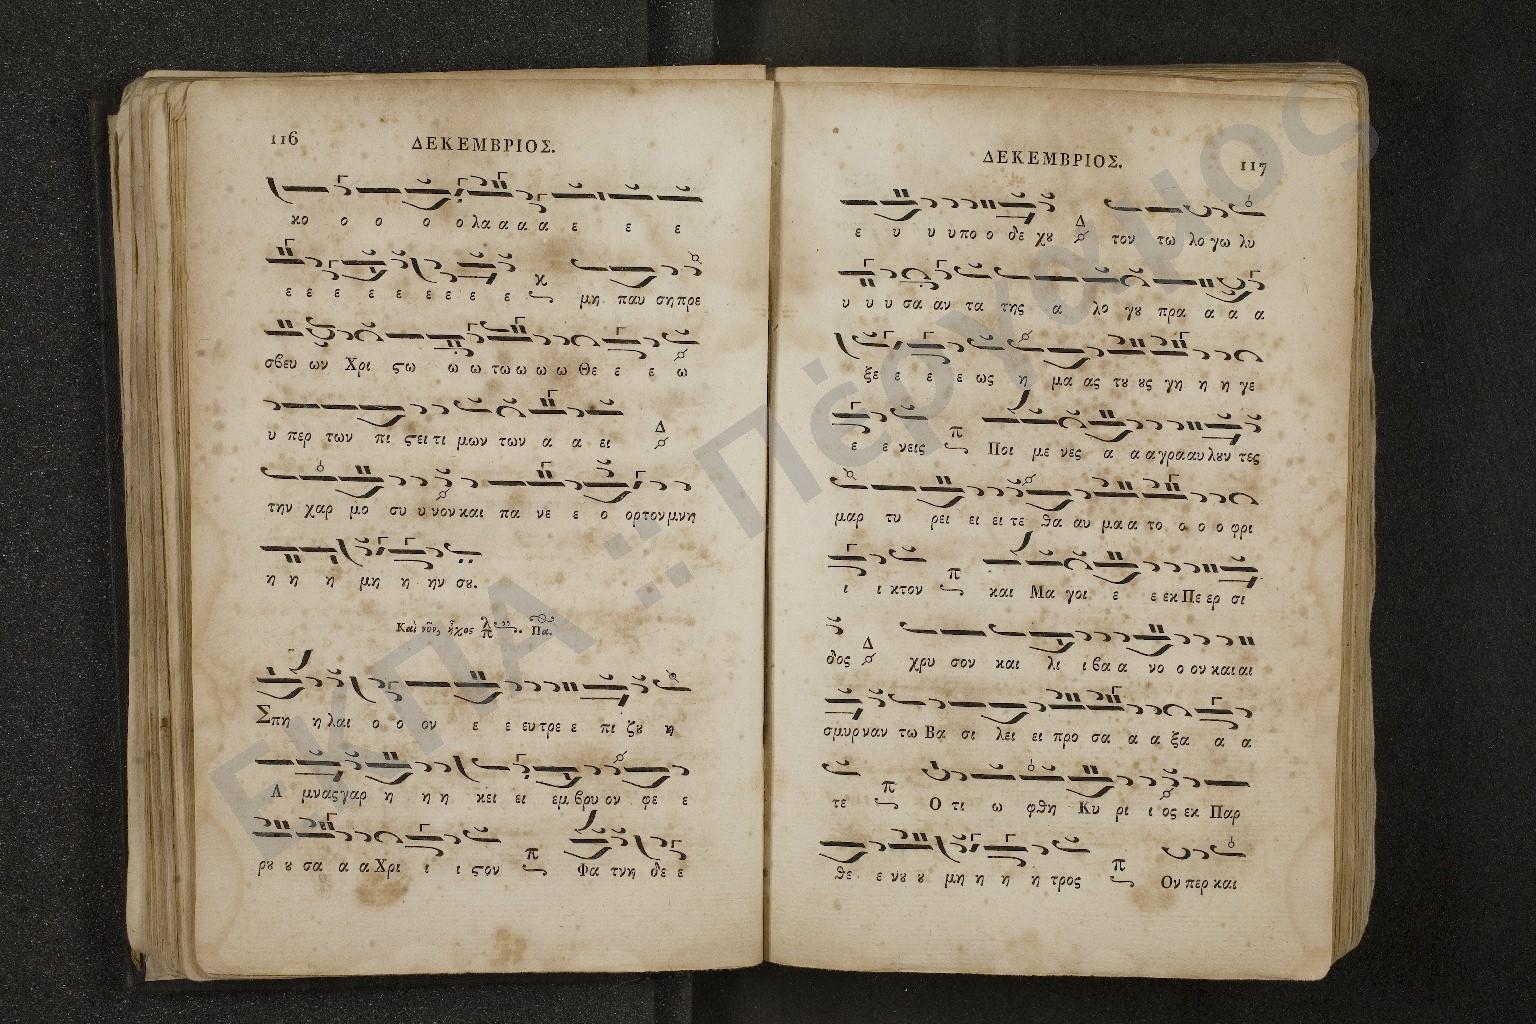 116
ΔΕΚΕΜΒΡΙΟΣ.
κο ο ο ο ο λα α α α ε ε ε
ε ε ε ε ε ε ε ε ε μη παυ ση πρε
σβευ ων Χρι ϛω ω ω τω ω ω ω Θε ε ε ω
υ περ των πι ϛει τι μων των α α ει
την χαρ μο συ υ νον και πα νε ε ο ορτον μνη
η η η μη η ην σȣ.
Καὶ νῦν, ἦχος λ π Πα.
Σπη η λαι ο ο ον ε ε ευ τρε ε πι ζȣ η
Α μνας γαρ η η η κει ει εμ βρυ ον φε ε
ρȣ ȣ σα α α Χρι ι ι ϛον π Φα τνη δε ε
ΔΕΚΕΜΒΡΙΟΣ.
117
ε υ υ υ πο ο δε χȣ Δ τον τω λο γω λυ
υ υ υ σα αν τα της α λο γȣ πρα α α α
ξε ε ε ε ως η μα ας τȣ ȣς γη η η γε
ε ε νεις π Ποι με νες α α α γρα αυ λȣν τες
μαρ τυ ρει ει ει τε θα αυ μα α το ο ο ο φρι
ι ι κτον π και Μα γοι ε ε εκ Πε ερ σι
δος Δ χρυ σον και λι ι βα α νο ο ον και αι
σμυρ ναν τω Βα σι λει ει προ σα α α ξα α α
τε π Ο τι ω φθη Κυ ρι ι ος εκ Παρ
θε ε νȣ ȣ μη η η η τρος π Ον περ και
ΕΚΠΑ :: Πέργαμος